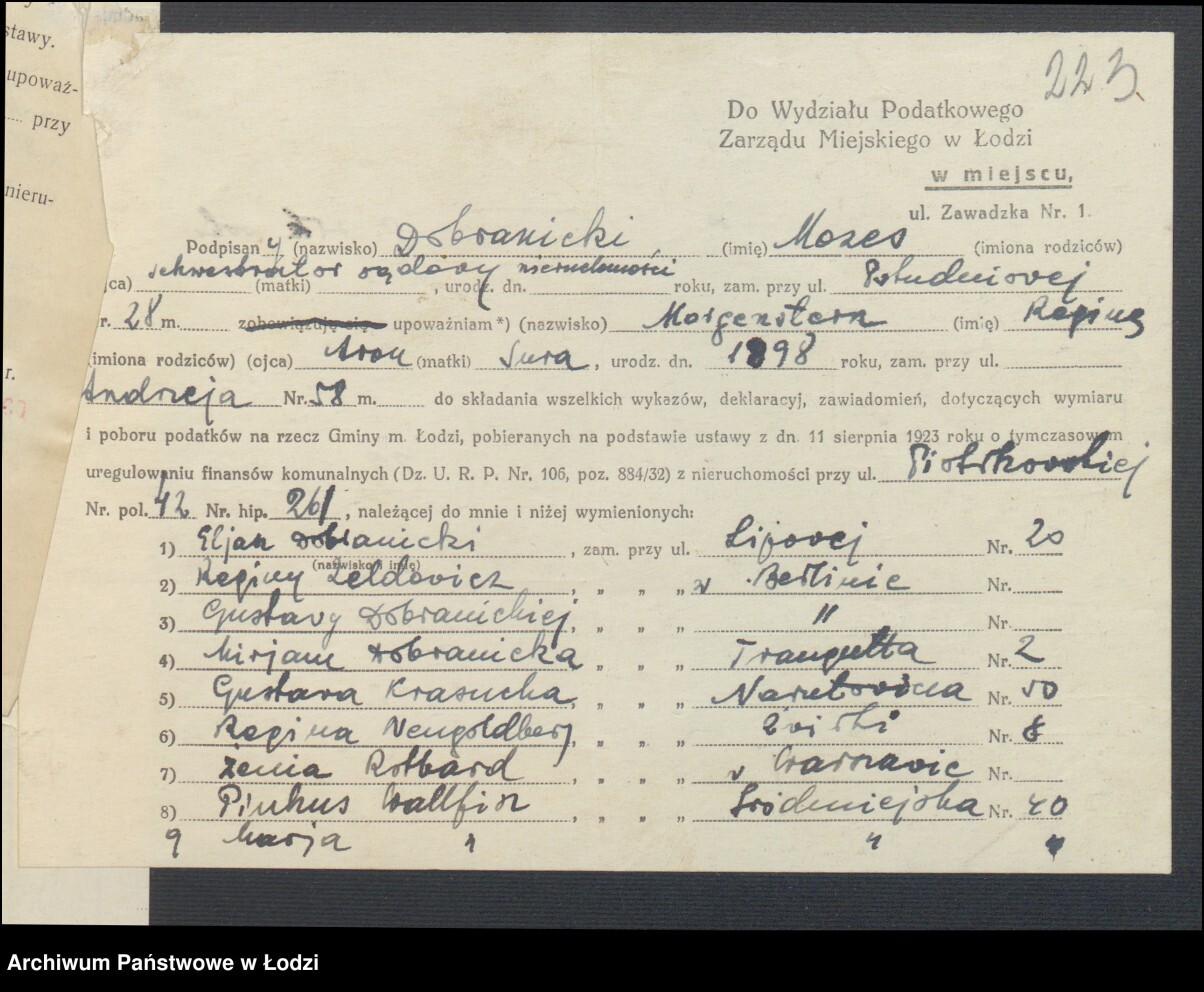 stawy.
upoważ-
przy
nieru-
r.
223
Do Wydziału Podatkowego
Zarządu Miejskiego w Łodzi
w miejscu,
ul. Zawadzka Nr. 1.
Podpisany (nazwisko) Dobranicki (imię) Mozes (imiona rodziców)
sekwestrator sądowy nieruchomości
jca) (matki) , urodz. dn. roku, zam. przy ul. Południowej
r. 28 m. zobowiązuję się upoważniam*) (nazwisko) Morgenstern (imię) Reginę
imiona rodziców) (ojca) Aron (matki) Sura , urodz. dn. 1898 roku, zam. przy ul.
Andrzeja Nr. 58 m. do składania wszelkich wykazów, deklaracyj, zawiadomień, dotyczących wymiaru
i poboru podatków na rzecz Gminy m. Łodzi, pobieranych na podstawie ustawy z dn. 11 sierpnia 1923 roku o tymczasowem
uregulowaniu finansów komunalnych (Dz. U. R. P. Nr. 106, poz. 884/32) z nieruchomości przy ul. Piotrkowskiej
Nr. pol. 42 Nr. hip. 261 , należącej do mnie i niżej wymienionych:
1) Eljan Dobranicki , zam. przy ul. Lipowej Nr. 20
(nazwisko i imię)
2) Reginy Zeldowicz , „ „ „ w Berlinie Nr.
3) Gustavy Dobranickiej, „ „ „ " Nr.
4) Mirjam Dobranicka „ „ „ Traugutta Nr. 2
5) Gustava Krasucka, „ „ „ Narutowicza Nr. 50
6) Regina Neugoldberg, „ „ „ Żwirki Nr. 8
7) Żenia Rotbard , „ „ „ w Warszawie Nr.
8) Pinkus Wallfisz , „ „ „ Śródmiejska Nr. 40
9 Marja " " "
Archiwum Państwowe w Łodzi